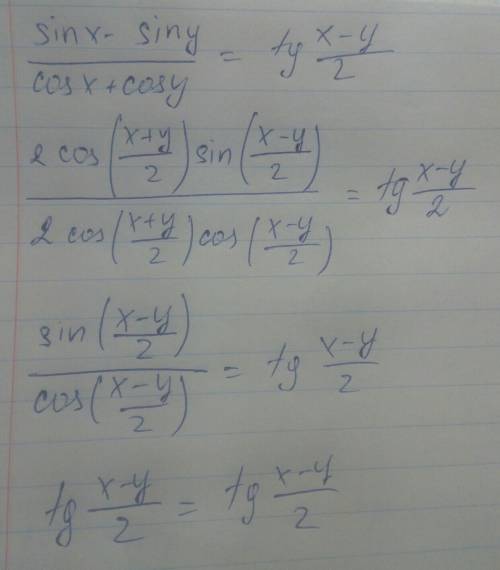 sinx - siny / cosx + cosy = tg x-y / 2
2 cos(x+y / 2) sin(x-y / 2) / 2 cos(x+y / 2) cos(x-y / 2) = tg x-y / 2
sin(x-y / 2) / cos(x-y / 2) = tg x-y / 2
tg x-y / 2 = tg x-y / 2